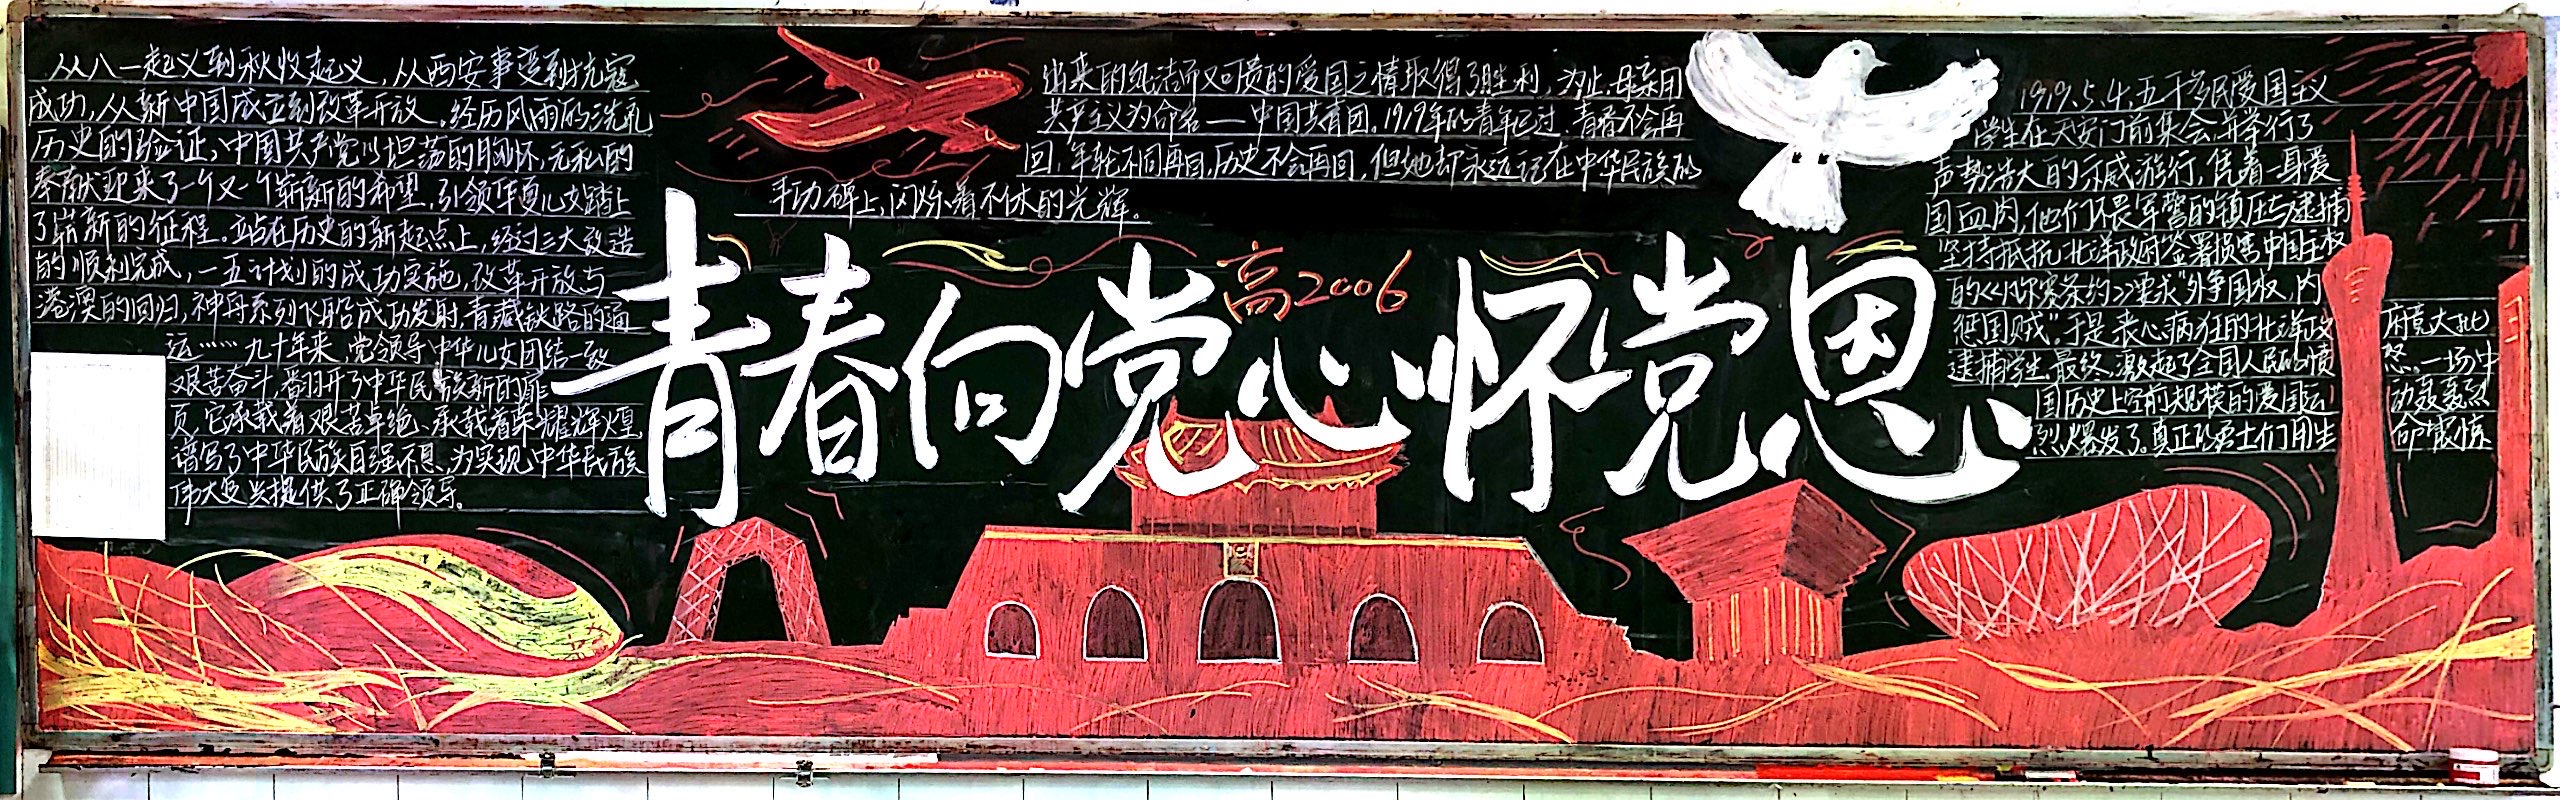 从八一起义到秋收起义，从西安事变到抗寇
成功，从新中国成立到改革开放。经历风雨的洗礼
历史的验证，中国共产党以坦荡的胸怀，无私的
奉献迎来了一个又一个崭新的希望，引领华夏儿女踏上
了崭新的征程。站在历史的新起点上，经过三大改造
的顺利完成，一五计划的成功实施，改革开放与
港澳的回归，神舟系列飞船成功发射，青藏铁路的通
运……九十年来，党领导中华儿女团结一致
艰苦奋斗，翻开了中华民族新的扉
页，它承载着艰苦卓绝、承载着荣耀辉煌，
谱写了中华民族自强不息，为实现中华民族
伟大复兴提供了正确领导。
青春向党心怀党恩
高2006
1919.5.4.五千多民爱国主义
学生在天安门前集会，并举行了
声势浩大的示威游行，凭着一身爱
国血肉，他们不畏军警的镇压与逮捕
坚持抵抗北洋政府签署损害中国主权
的《凡尔赛条约》要求"外争国权，内
惩国贼"。于是丧心病狂的北洋政府竟大批
逮捕学生，最终，激起了全国人民的愤怒。一场中
国历史上空前规模的爱国运动轰轰烈
烈爆发了。真正的勇士们用生命
来的纯洁而又可贵的爱国之情取得了胜利，为此，母亲用
共产主义为命名——中国共青团。1919年的青年已过，青春不会再
回，年轮不同再回，历史不会再回，但她却永远记在中华民族的
丰功碑上，闪烁着不休的光辉。